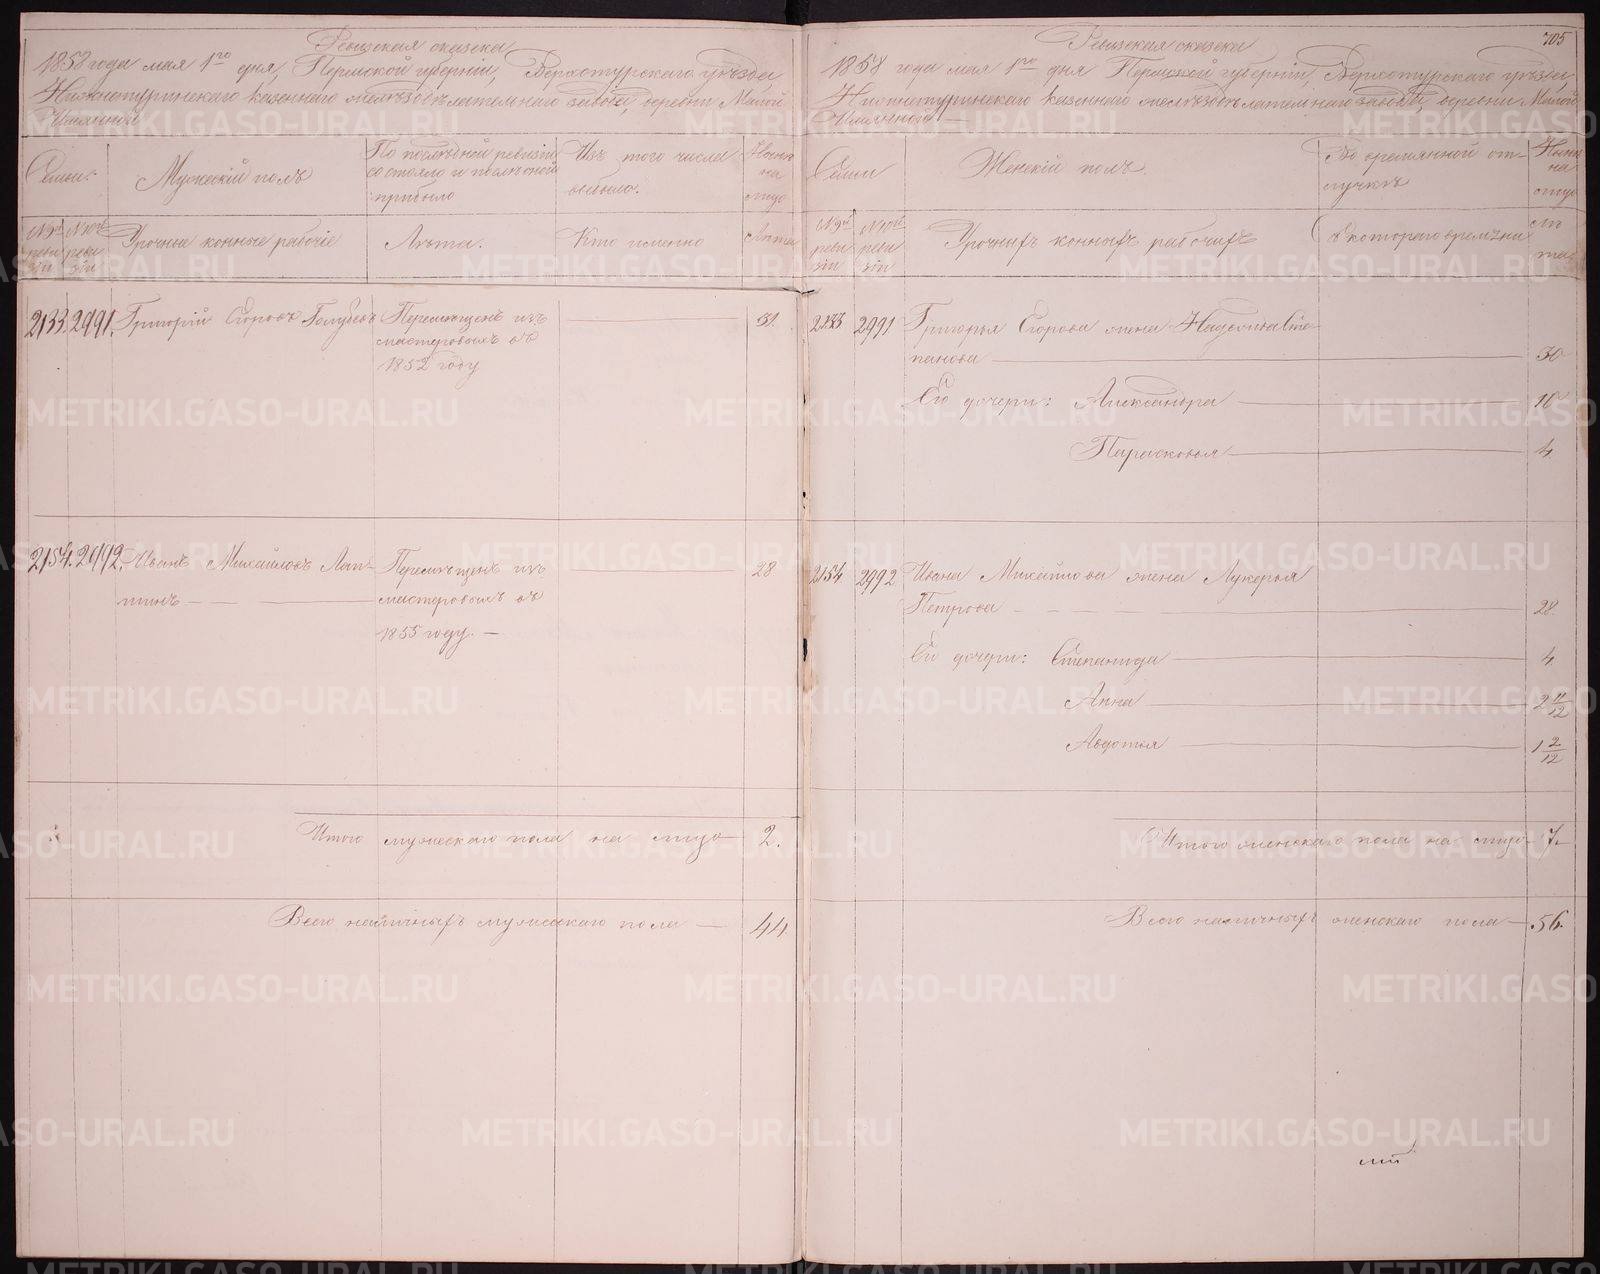 Ревизская сказка
1858 года мая 1го дня, Пермской губерніи, Верхотурскаго уѣзда
Нижнетуринскаго казеннаго желѣзодѣлательнаго завода, деревни Малой
Именной
Семьи. Мужескій полъ По послѣдней ревизіи состояло и послѣ оной прибыло Изъ того числа выбыло. Нынѣ на лицо
№ 9й ревизіи № 10й ревизіи Урочные конные рабочіе Лѣта. Кто именно Лѣта
2133. 2991. Григорій Егоровъ Голубевъ Перемѣщенъ изъ 31.
мастеровыхъ въ
1852 году
2154. 2992. Иванъ Михайловъ Лап- Перемѣщенъ изъ 28
тинъ мастеровыхъ въ
1855 году.
Итого мужескаго пола на лицо 2.
Всего наличныхъ мужескаго пола 44
705
Ревизская сказка
1858 года мая 1го дня Пермской губерніи, Верхотурскаго уѣзда
Нижнетуринскаго казеннаго желѣзодѣлательнаго завода, деревни Малой
Именного
Семьи Женскій полъ. Во временной отлучкѣ Нынѣ на лицо
№ 9й ревизіи № 10й ревизіи Урочныхъ конныхъ рабочихъ Съ котораго времени Лѣта
2133 2991 Григорья Егорова жена Надежда Сте-
панова 30
Его дочери: Александра 10
Парасковья 4
2154 2992 Ивана Михайлова жена Лукерья
Петрова 28
Его дочери: Степанида 4
Анна 2 11/12
Авдотья 1 2/12
Итого женскаго пола на лицо 7.
Всего наличныхъ женскаго пола 56.
METRIKI.GASO-URAL.RU